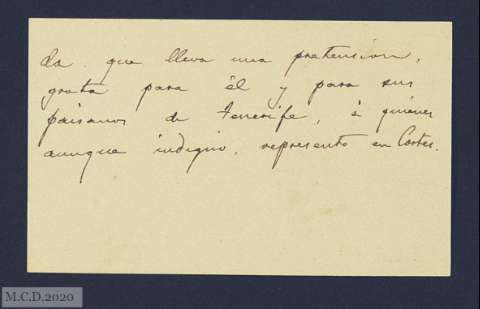 da. que lleva una pretension,
grata para él y para sus
paisanos de Tenerife, á quienes
aunque indigno, represento en Cortes.
M.C.D.2020